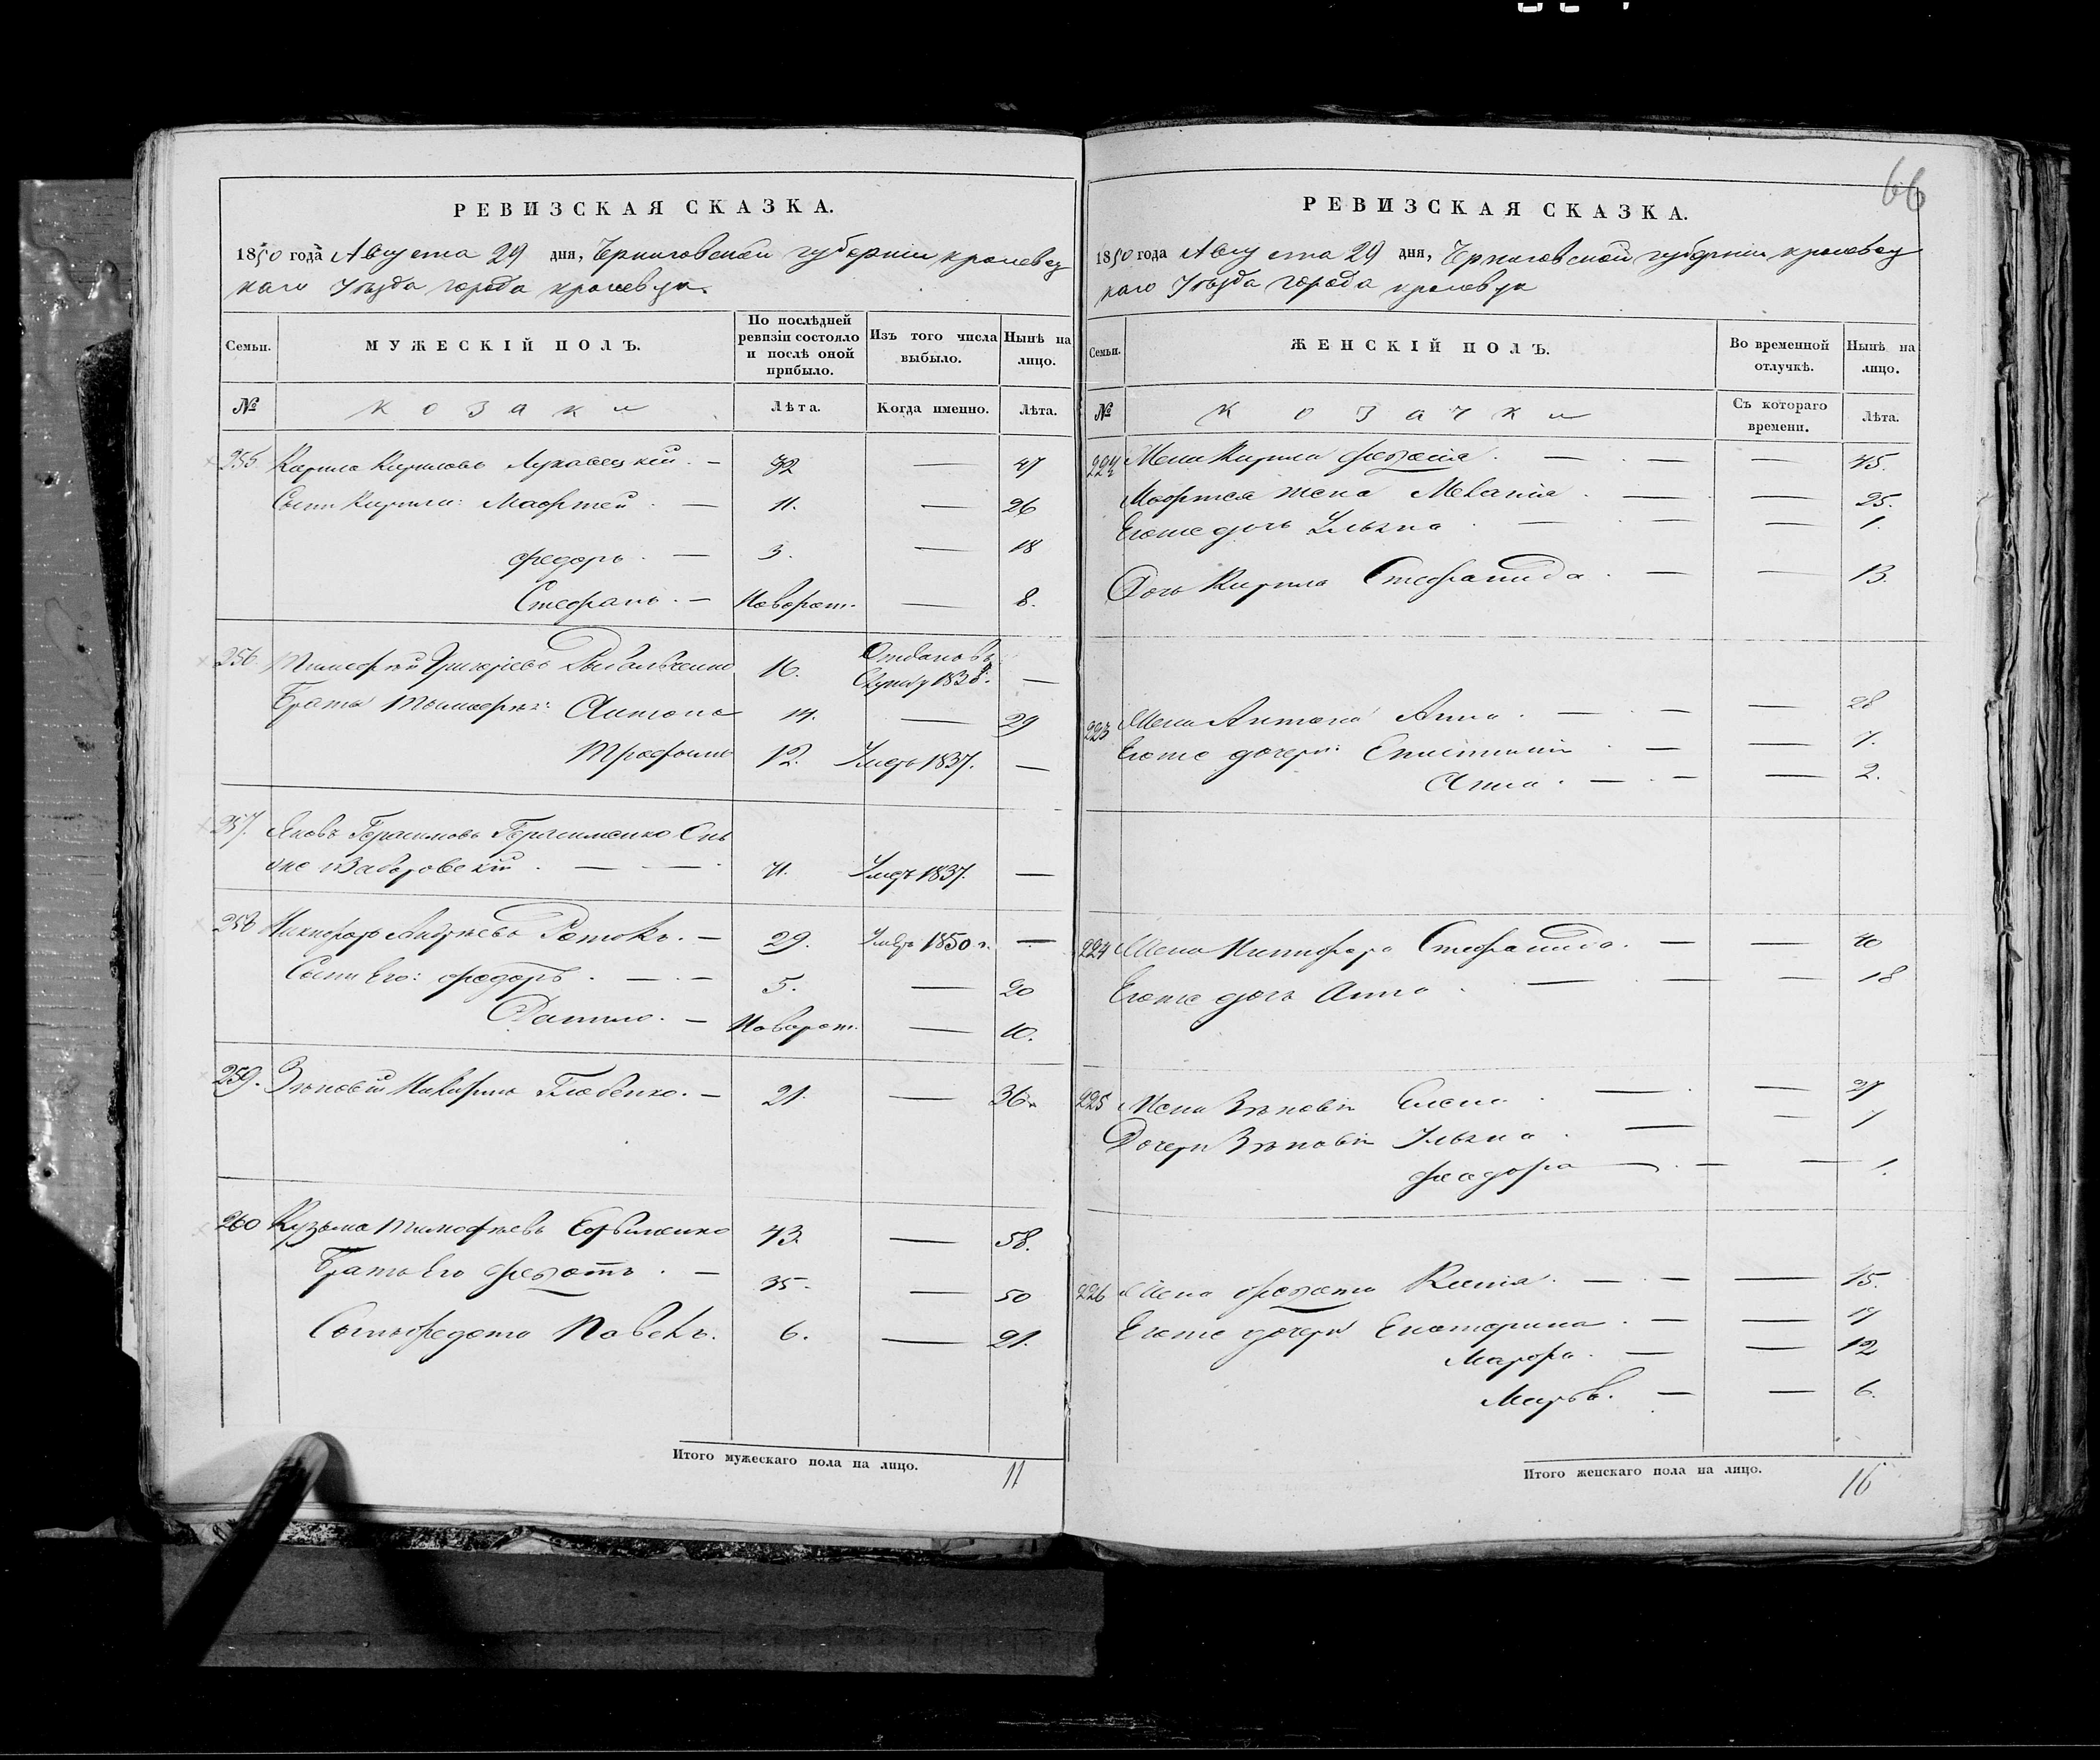 66
РЕВИЗСКАЯ СКАЗКА.
1850 года Августа 29 дня, Черниговской губерніи кролевец
каго Уѣзда города кролевца.
Семьи.
МУЖЕСКІЙ ПОЛЪ.
По послѣдней
ревизіи состояло
и послѣ оной
прибыло.
Изъ того числа
выбыло.
Нынѣ на
лицо.
№
козаки
Лѣта.
Когда именно.
Лѣта.
255 Кирила Кириловъ —
32 — 47
Сыны Кирила: Маофтей . — 11. — 26
Федоръ . — 3. — 18
Стефанъ . — Новорож. — 8.
256. Тимофѣй Григорьевъ 16. Отданъ въ
1838. —
Братья Тимофея: Антонъ 14. — 29
Трофимъ 12. Умеръ 1837. —
257. Яковъ Герасимовъ Герасименко Онъ
же Заборовскій . — — 71. Умеръ 1837. —
258 Никифоръ Андреевъ . — 29. Умеръ 1850 г. —
Сыны Его: Федоръ . — — 5. — 20
Данило . — Новорож. — 10.
259. Зѣновій . — 21. — 36.
260 Кузьма Тимофѣевъ 43. — 58.
Братъ Его Федотъ . — 35. — 50
Сынъ Федота Павелъ. 6. — 21.
Итого мужескаго пола на лицо. 11
РЕВИЗСКАЯ СКАЗКА.
1850 года Августа 29 дня, Черниговской губерніи кролевец
каго Уѣзда города кролевца
Семьи.
ЖЕНСКІЙ ПОЛЪ.
Во временной
отлучкѣ.
Нынѣ на
лицо.
№
козачки
Съ котораго
времени.
Лѣта.
222 Жена Кирила . — — — 45.
Маофтея жена Меланія . — — — 25.
Егоже дочь Ульяна . — — — 1.
Дочь Кирила Стефанида . — — 13.
223 Жена Антона Анна . — — — 28
Егоже дочери: . — — 7.
Анна . — — — 2.
224 Жена Никифора Стефанида . — — 40
Егоже дочь Анна . — — — 18
225 Жена Зѣновія Елена . — — 27
Дочери Зѣновія Ульяна . — — 7
Феодора — — — 1.
226 Жена Федота Ксенія . — — — 45.
Егоже дочери Екатерина . — — 17
Марфа . — — 12
Марья. — — 6.
Итого женскаго пола на лицо. 16